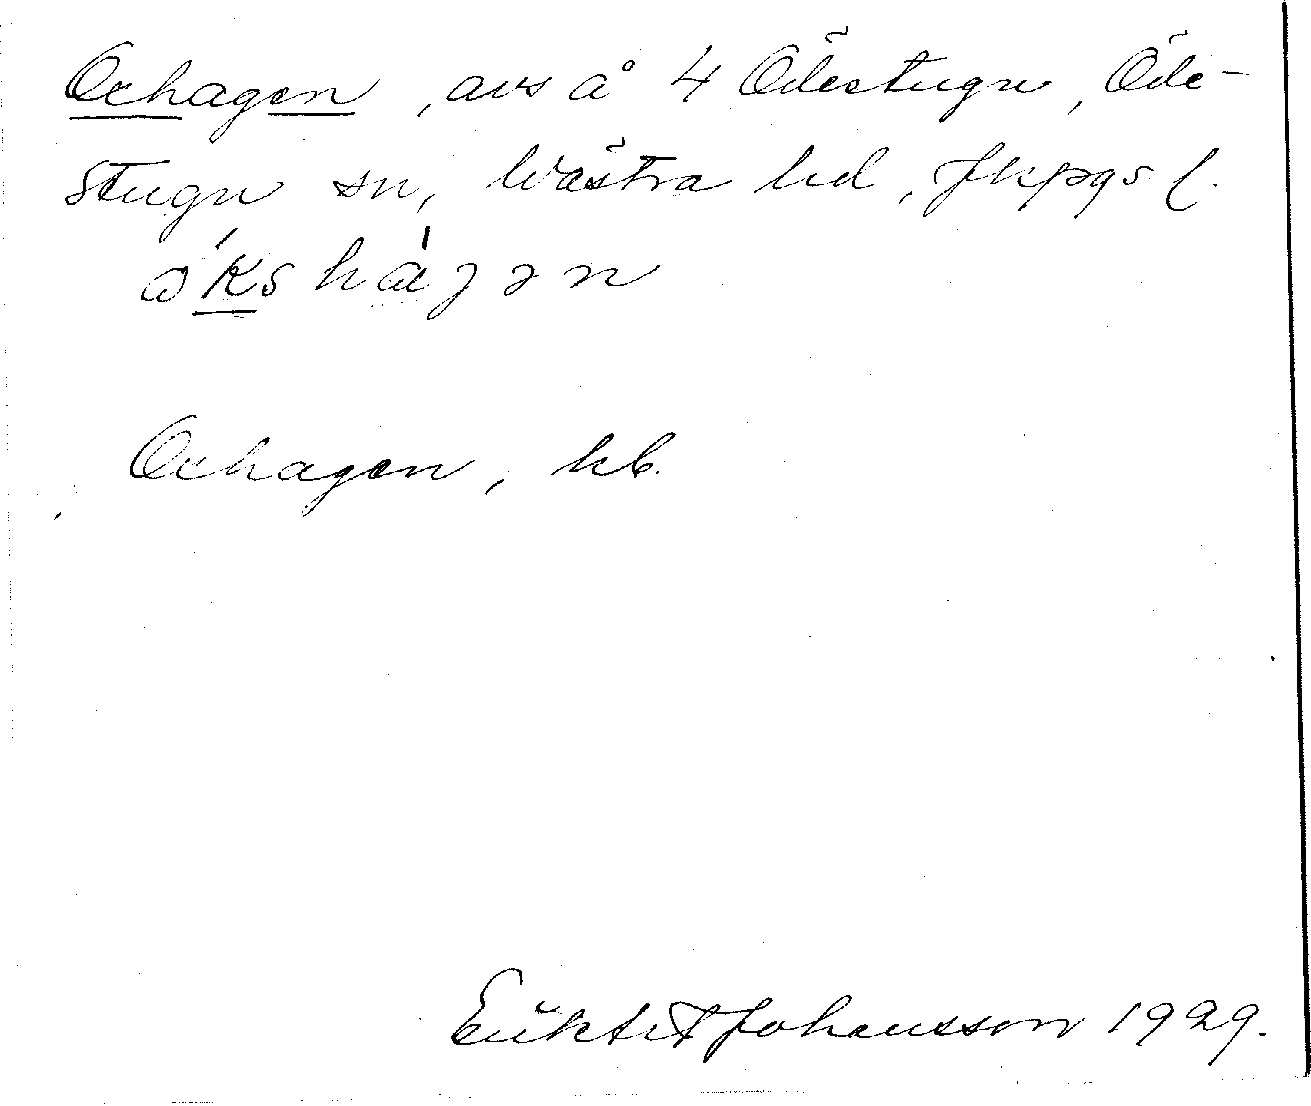 Oxhagen, avs å 4 Ödestugu, Öde-
stugu sn, Västra hd, Jkpgs l.
ɷ́kshὰgən
Oxhagen, kb.
Johansson 1929.